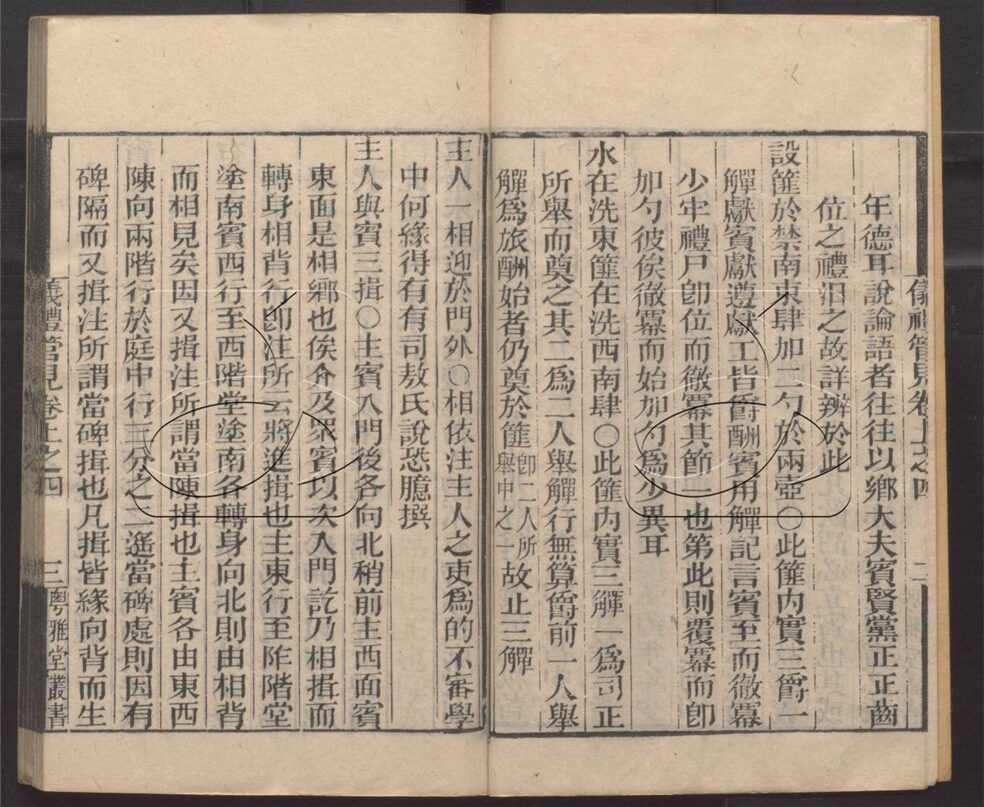 儀禮管見卷上之四 二
年德耳說論語者往往以鄉大夫賓賢黨正正齒
位之禮汨之故詳辨於此
設篚於禁南東肆加二勺於兩壺○此篚內實三爵一
觶獻賓獻遵獻工皆爵酬賓用觶記言賓至而徹冪
少牢禮尸卽位而徹冪其節一也第此則覆冪而卽
加勺彼俟徹冪而始加勺爲少異耳
水在洗東篚在洗西南肆○此篚內實三觶一爲司正
所舉而奠之其二爲二人舉觶行無算爵前一人舉
觶爲旅酬始者仍奠於篚卽二人所舉中之一故止三觶
主人一相迎於門外○相依注主人之吏爲的不審學
中何緣得有有司敖氏說恐臆撰
主人與賓三揖○主賓入門後各向北稍前主西面賓
東面是相鄉也俟介及眾賓以次入門訖乃相揖而
轉身相背行卽注所云將進揖也主東行至阼階堂
塗南賓西行至西階堂塗南各轉身向北則由相背
而相見矣因又揖注所謂當陳揖也主賓各由東西
陳向兩階行於庭中行三分之二遙當碑處則因有
碑隔而又揖注所謂當碑揖也凡揖皆緣向背而生
義禮管見卷上之四 三 粵雅堂叢書